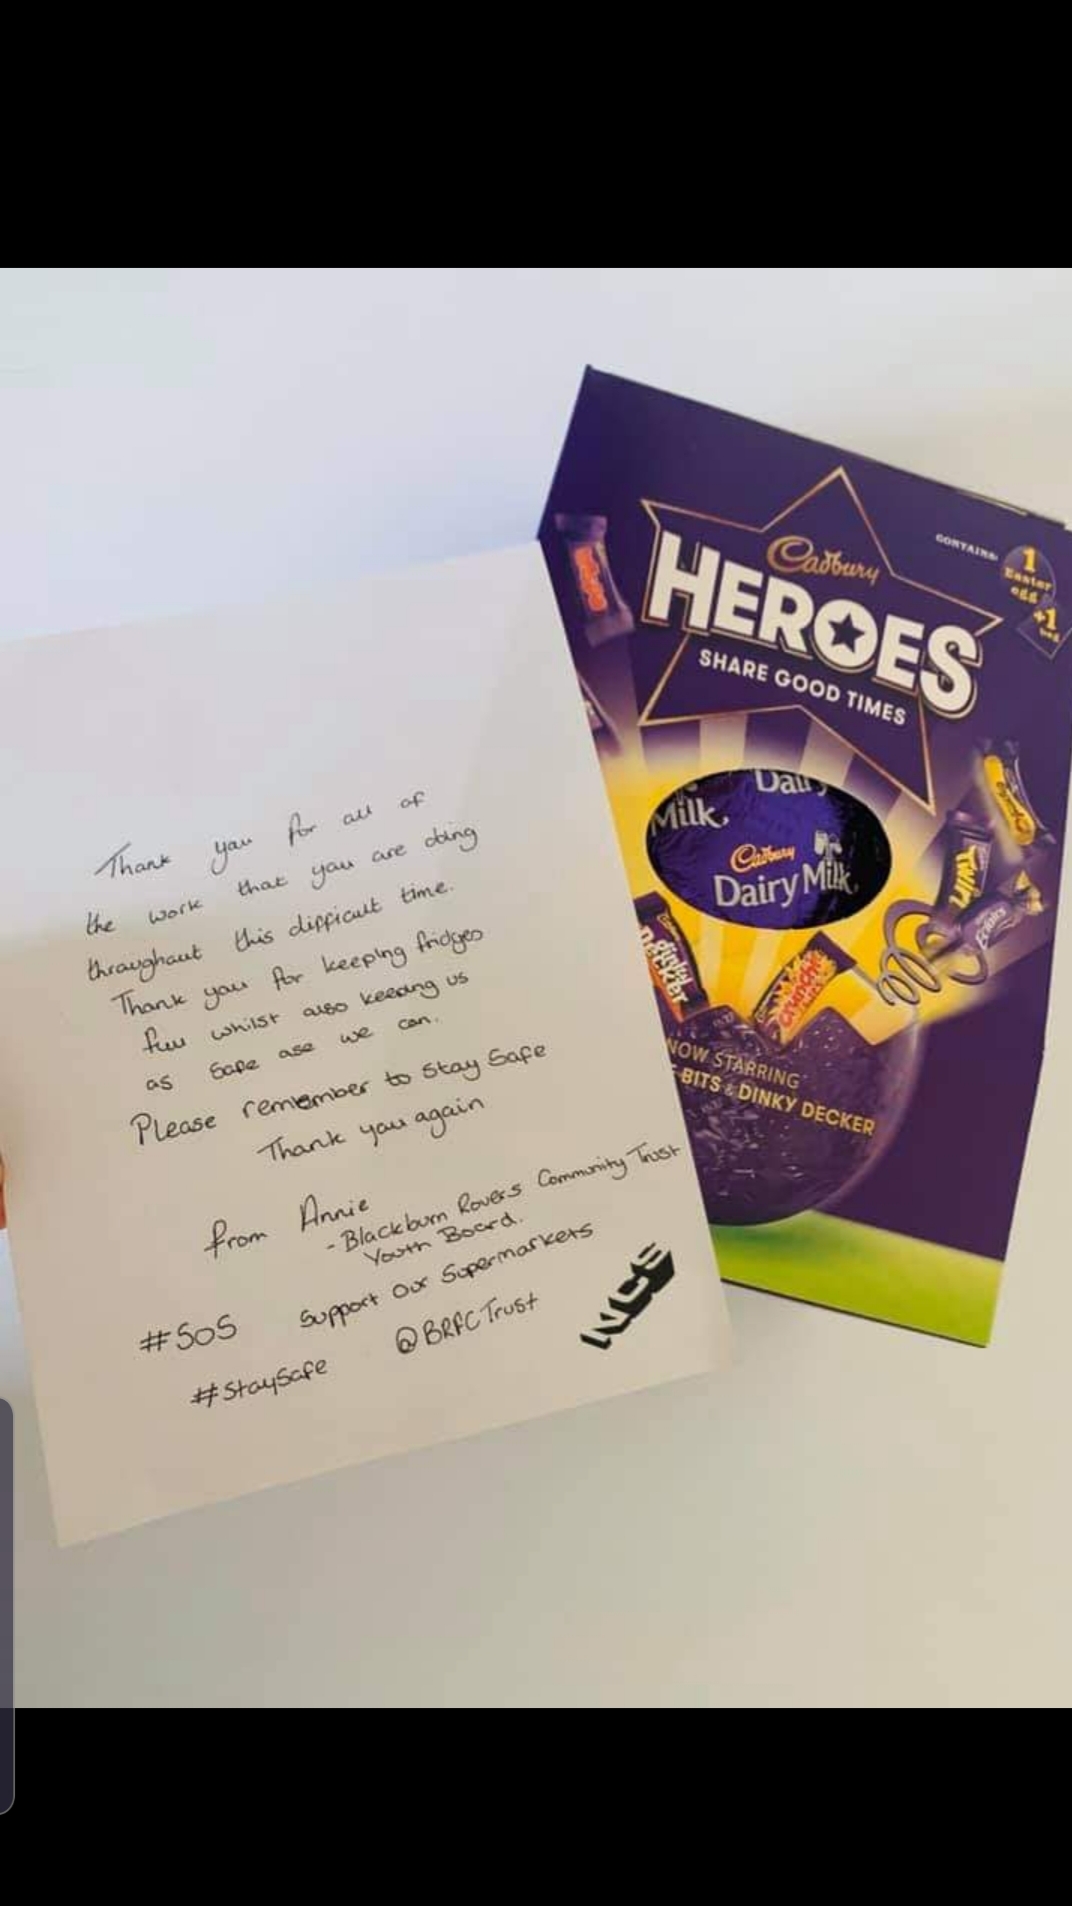 Thank you for all of
the work that you are doing
throughout this difficult time.
Thank you for keeping fridges
full whilst also keeping us
as safe ase we can.
Please remember to Stay Safe
Thank you again
from Annie
- Blackburn Rovers Community Trust
Youth Board.
#SOS Support Our Supermarkets
#StaySafe @BRFCTrust
NCS
Cadbury
HEROES
SHARE GOOD TIMES
CONTAINS:
1
Easter
egg
+1
bag
Dairy
Milk
Cadbury
Dairy Milk
Twirl
Eclairs
dinky
decker
crunchie
BITS
NOW STARRING
BITS & DINKY DECKER